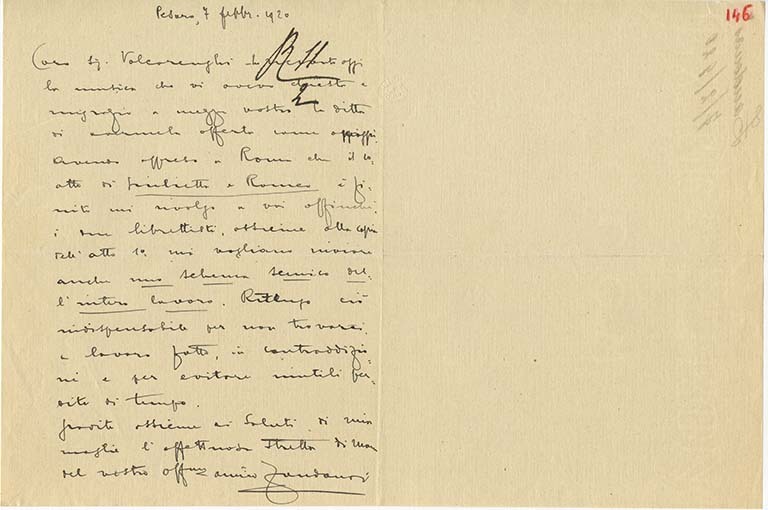 Pesaro, 7 febbr. 1920
146
Caro Sig. Valcarenghi ho ricevuto oggi
la musica che vi avevo chiesto e
ringrazio a mezzo vostro la ditta
di avermela offerta come omaggio.
Avendo appreso a Roma che il 1o
atto di Giulietta e Romeo è fi-
nito mi rivolgo a voi affinchè
i due librettisti, assieme alla copia
dell'atto 1o mi vogliano inviare
anche uno schema scenico del-
l'intero lavoro. Ritengo ciò
indispensabile per non trovarci,
a lavoro fatto, in contraddizio-
ni e per evitare inutili per-
dite di tempo.
Gradite assieme ai saluti di mia
moglie l'affettuosa stretta di man
del vostro aff.mo amico Zandonai